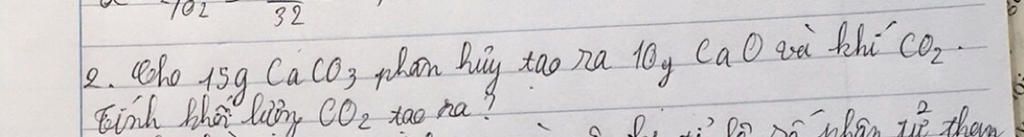 32
2. Cho 15g CaCO3 phân hủy tạo ra 10g CaO và khí CO2.
Tính khối lượng CO2 tạo ra?